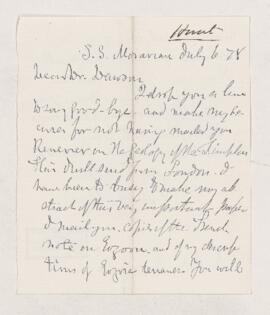 Hunt
S.S. Moravian July 6 78
Dear Dr. Dawson
I drop you a line
to say good-bye - and make my ex-
cuses for not having mailed you
Renevier on the Geology of the Simplon
This I will send from London. I
have been to busy to make my ab-
stract of this very important paper
I mail you copies of the French
note on Eozoon and of my
tions of Eozoic terranes. You will